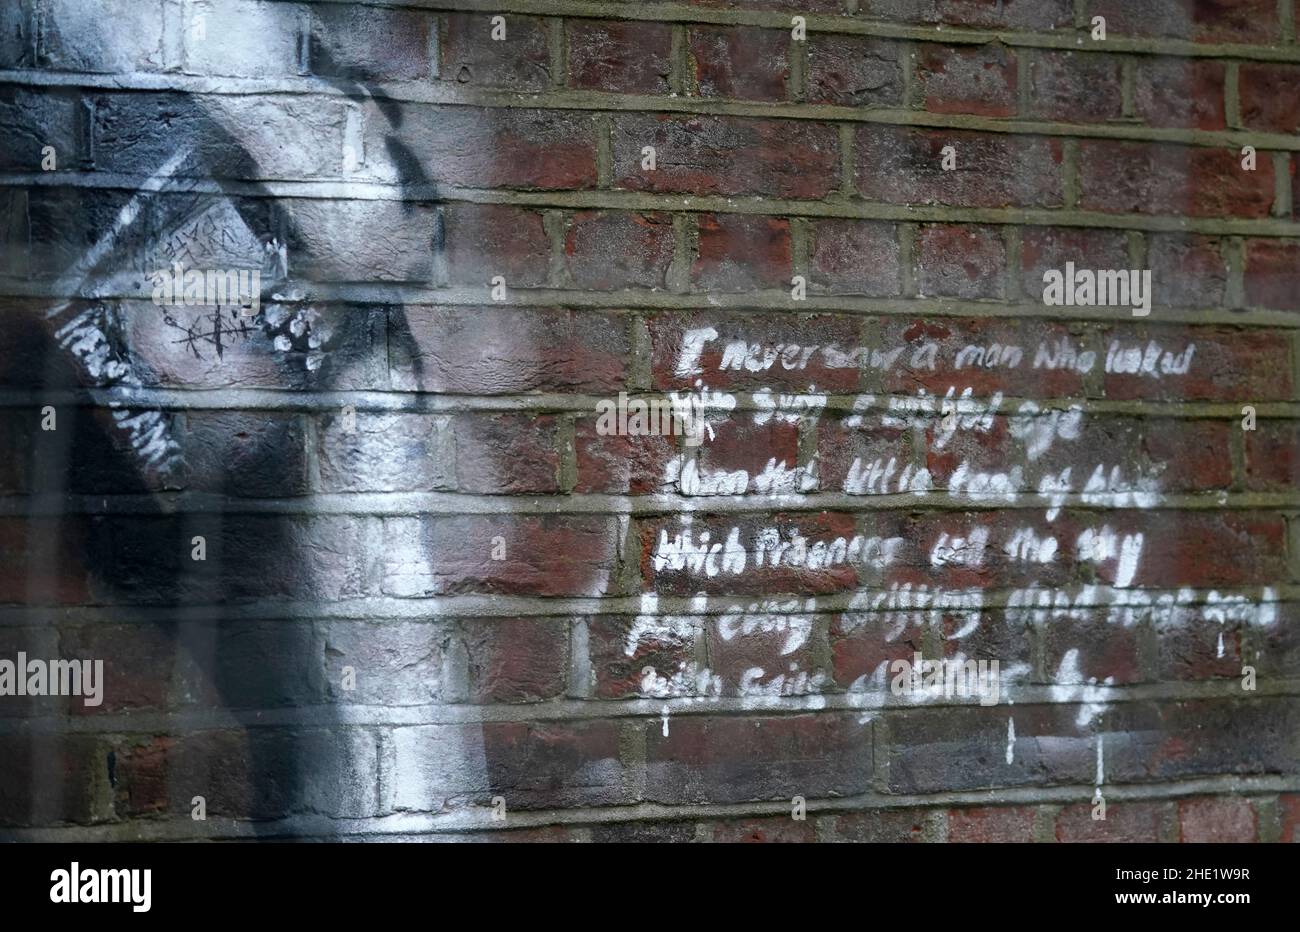 I never saw a man who looked
with such a wistful eye
Upon that little tent of blue
Which Prisoners call the sky
And every drifting cloud that went
with sails of silver by.
alamy
Image ID: 2HE1W9R
www.alamy.com